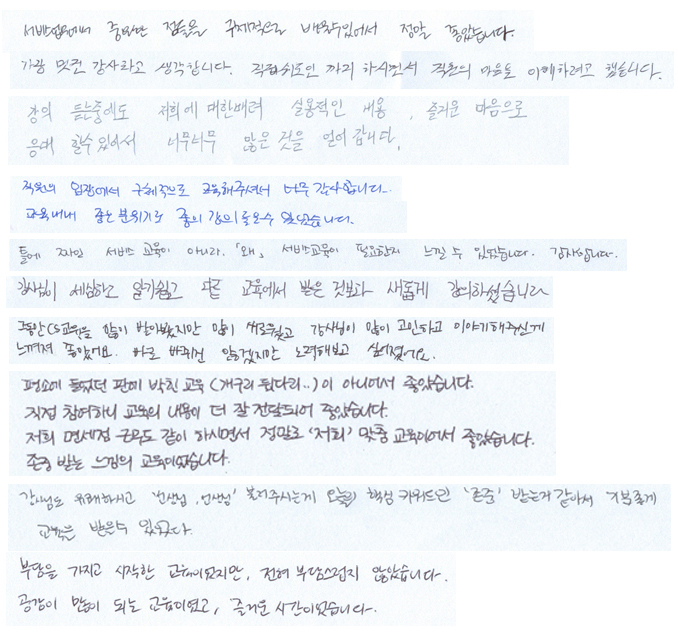 서비스업에서 중요한 점들을 구체적으로 배울수있어서 정말 좋았습니다.
가장 멋진 강사라고 생각합니다. 직접 쉬는시간 까지 하시면서 직원의 마음을 이해하려고 했습니다.
강의 듣는중에도 저희에 대한배려 실용적인 내용, 즐거운 마음으로
응대 할수있어서 너무너무 많은 것을 얻어 갑니다.
직원의 입장에서 구체적으로 교육해주셔서 너무 감사합니다.
교육내내 좋은 분위기로 좋의 강의 들을수 있었습니다.
틀에 짜인 서비스 교육이 아니라. 「왜」 서비스교육이 필요한지 느낄 수 있었습니다. 감사합니다.
강사님이 세심하고 알기쉽고 다른 교육에서 받은 것보다 새롭게 강의하셨습니다
그동안CS교육을 많이 받아봤지만 많이 새로웠고 강사님이 많이 고민하고 이야기해주신게
느껴져 좋았어요. 바로 바뀌진 않겠지만 노력해보고 싶어졌어요.
평소에 들었던 판에 박힌 교육(개구리 뒷다리..)이 아니어서 좋았습니다.
직접 참여하니 교육의 내용이 더 잘 전달되어 좋았습니다.
저희 면세점 근무도 같이 하시면서 정말로 '저희' 맞춤 교육이어서 좋았습니다.
존중 받는 느낌의 교육이었습니다.
강사님도 위해하시고 '선생님, 선생님' 불러주시는게 오늘의 핵심 키워드인 '존중' 받는거 같아서 기분좋게
교육을 받을수 있었다.
부담을 가지고 시작한 교육이었지만, 전혀 부담스럽지 않았습니다.
공감이 많이 되는 교육이었고, 즐거운 시간이었습니다.